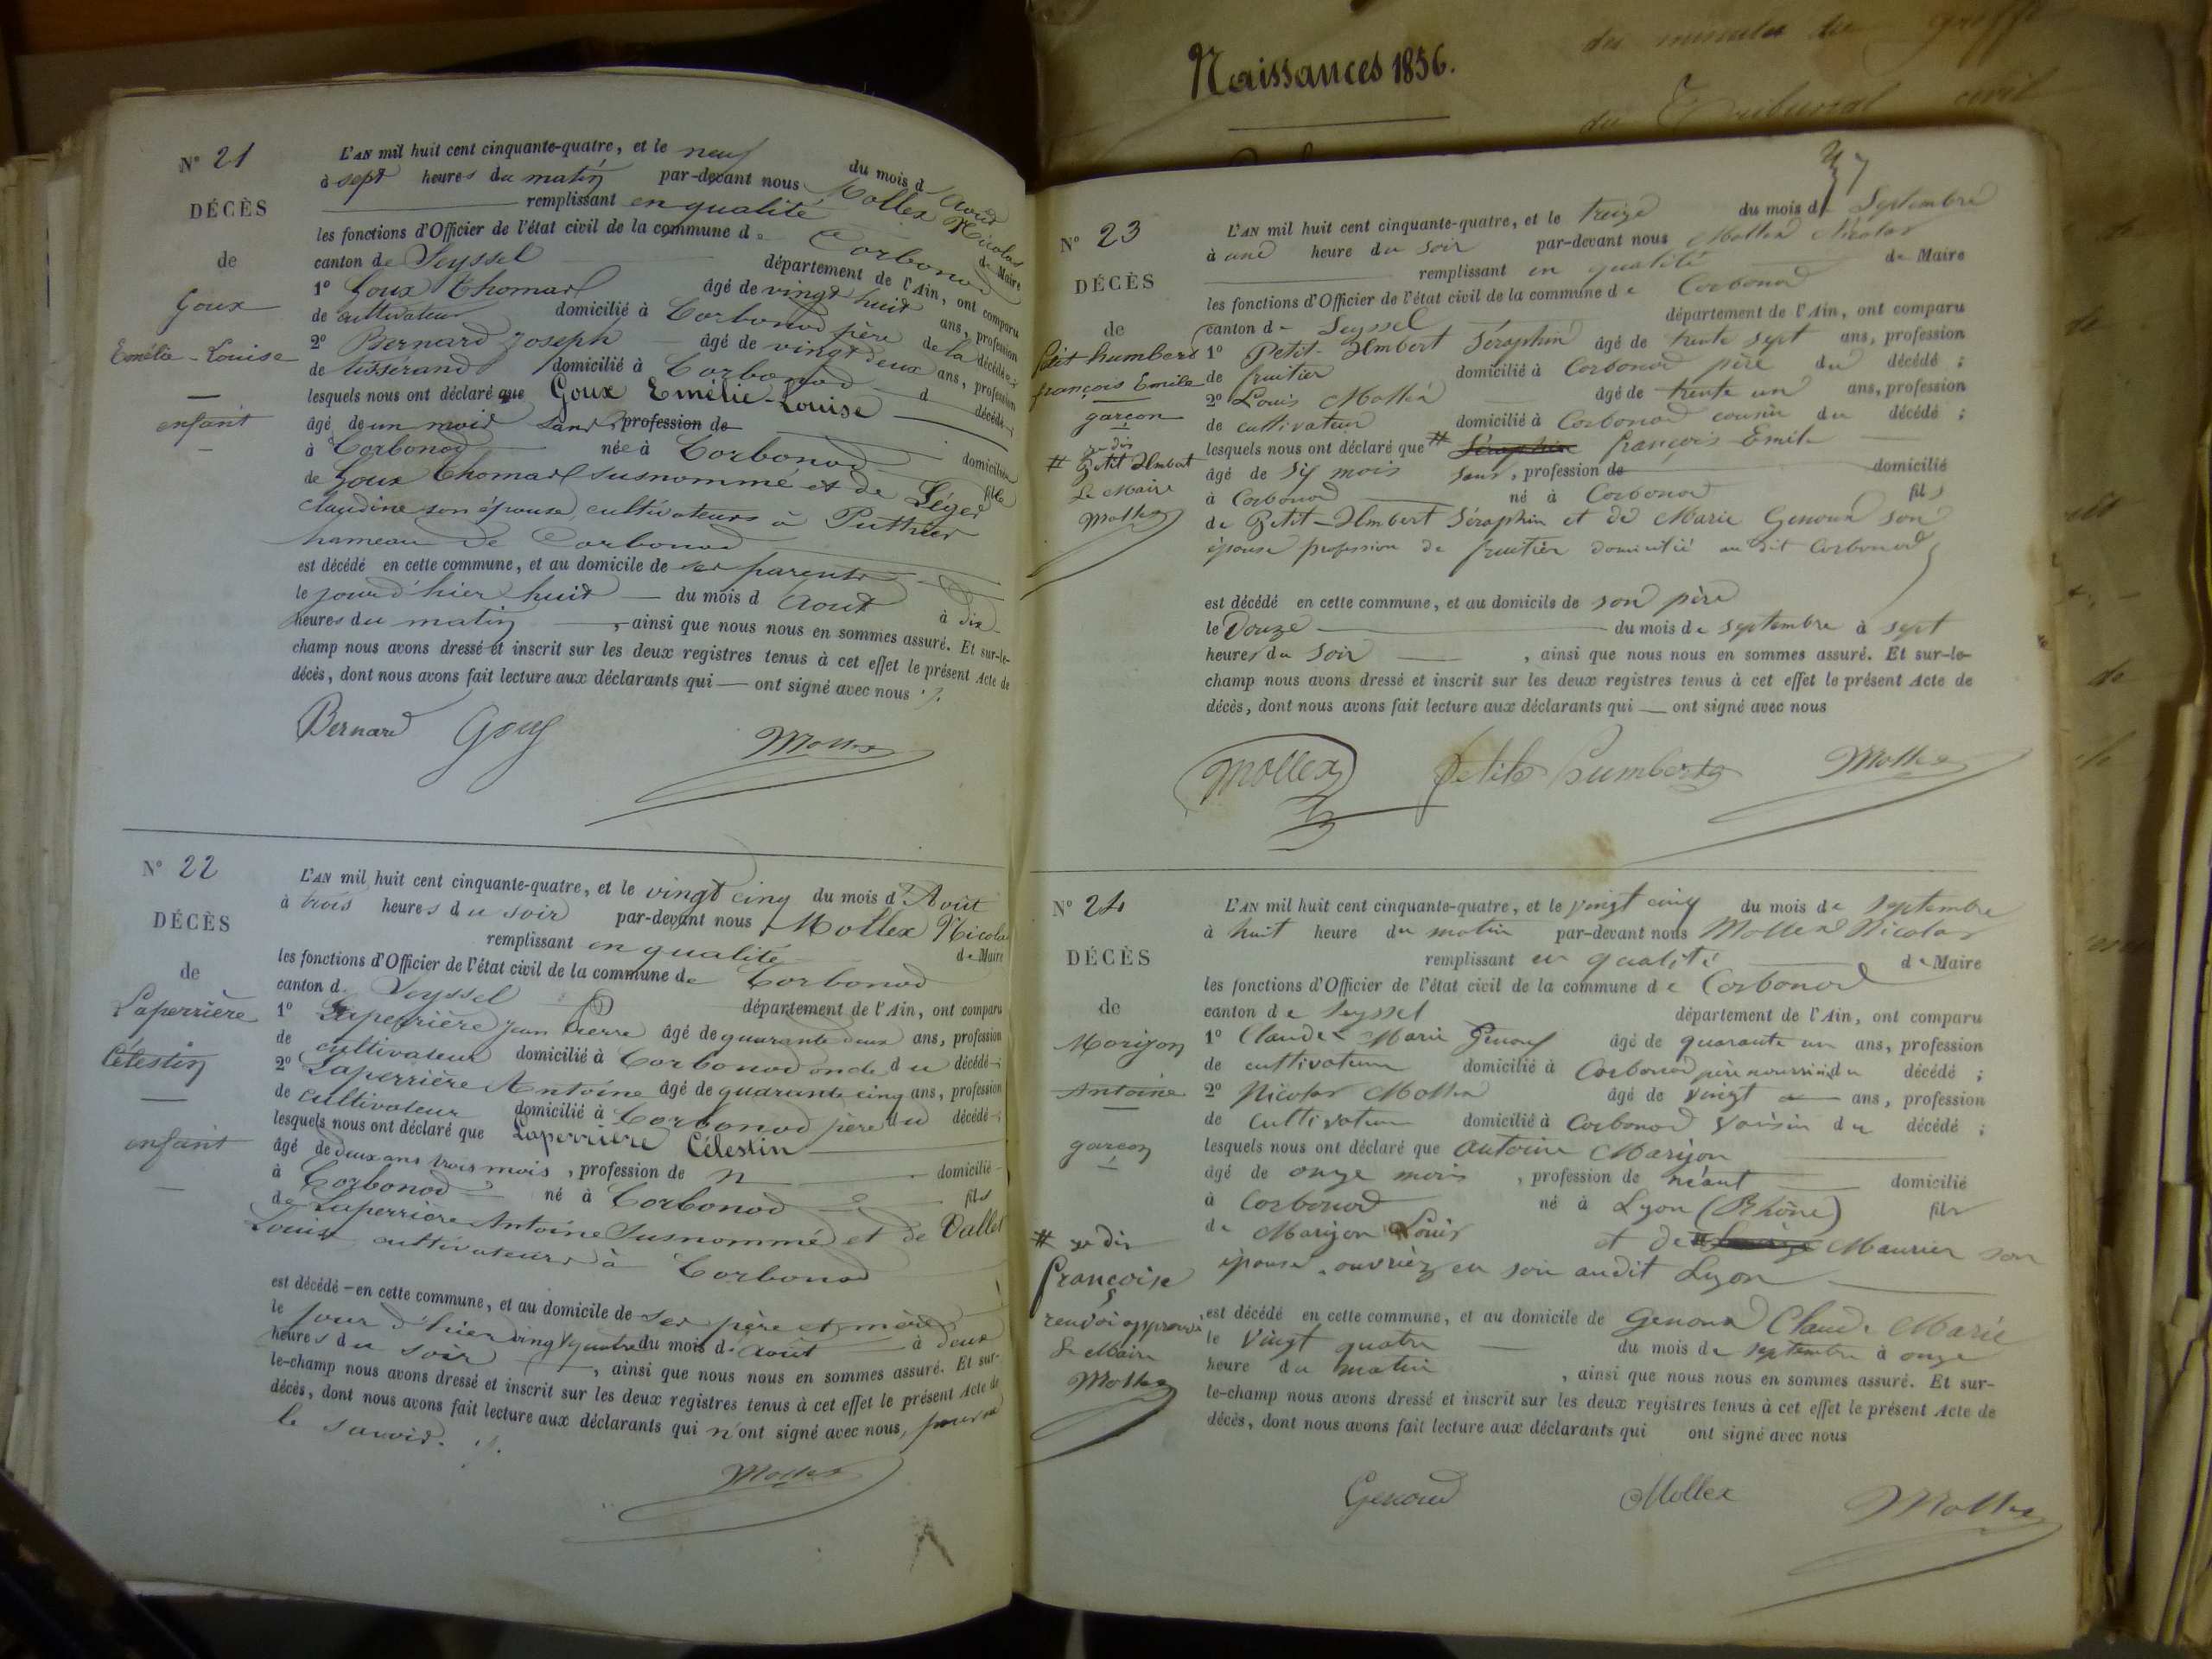 Naissances 1856.
des minutes du greffe
du Tribunal civil
N° 21
DÉCÈS
de
Goux
Emélie-Louise
enfant
L'AN mil huit cent cinquante-quatre, et le neuf du mois d'Août
à sept heures du matin par-devant nous Mollex Nicolas
remplissant en qualité de Maire
les fonctions d'Officier de l'état civil de la commune de Corbonod
canton de Seyssel département de l'Ain, ont comparu
1° Goux Thomas âgé de vingt huit ans, profession
de cultivateur domicilié à Corbonod père de la décédée;
2° Bernard Joseph âgé de vingt deux ans, profession
de tisserand domicilié à Corbonod d décédé;
lesquels nous ont déclaré que Goux Emélie-Louise
âgé de un mois sans profession de domiciliée
à Corbonod née à Corbonod fille
de Goux Thomas susnommé et de Léger
Claudine son épouse, cultivateurs à Puthier
hameau de Corbonod
est décédé en cette commune, et au domicile de ses parents
le jour d'hier huit du mois d Aout à dix
heures du matin, ainsi que nous nous en sommes assuré. Et sur-le-
champ nous avons dressé et inscrit sur les deux registres tenus à cet effet le présent Acte de
décès, dont nous avons fait lecture aux déclarants qui — ont signé avec nous
Bernard Goux Mollex
N° 22
DÉCÈS
de
Laperrière
Célestin
enfant
L'AN mil huit cent cinquante-quatre, et le vingt cinq du mois d'Août
à trois heures du soir par-devant nous Mollex Nicolas
remplissant en qualité de Maire
les fonctions d'Officier de l'état civil de la commune de Corbonod
canton de Seyssel département de l'Ain, ont comparu
1° Laperrière Jean Pierre âgé de quarante deux ans, profession
de cultivateur domicilié à Corbonod oncle du décédé;
2° Laperrière Antoine âgé de quarante cinq ans, profession
de cultivateur domicilié à Corbonod père du décédé;
lesquels nous ont déclaré que Laperrière Célestin
âgé de deux ans trois mois, profession de n domicilié
à Corbonod né à Corbonod fils
de Laperrière Antoine Susnommé et de Vallet
Louise cultivateurs à Corbonod
est décédé - en cette commune, et au domicile de ses père et mère
le jour d'hier vingt quatre du mois d'août à deux
heures du soir, ainsi que nous nous en sommes assuré. Et sur-
le-champ nous avons dressé et inscrit sur les deux registres tenus à cet effet le présent Acte de
décès, dont nous avons fait lecture aux déclarants qui n'ont signé avec nous, pour ne
le savoir.
Mollex
N° 23
DÉCÈS
de
Petit humbert
françois Emile
garçon
# je dis
Petit Humbert
Le Maire
Mollex
L'AN mil huit cent cinquante-quatre, et le treize du mois de Septembre
à une heure du soir par-devant nous Mollex Nicolas
remplissant en qualité de Maire
les fonctions d'Officier de l'état civil de la commune de Corbonod
canton de Seyssel département de l'Ain, ont comparu
1° Petit-Humbert Séraphin âgé de trente sept ans, profession
de fruitier domicilié à Corbonod père du décédé;
2° Louis Mollex âgé de trente un ans, profession
de cultivateur domicilié à Corbonod cousin du décédé;
lesquels nous ont déclaré que # Séraphin françois Emile
âgé de six mois sans, profession de domicilié
à Corbonod né à Corbonod fils
de Petit-Humbert Séraphin et de Marie Genoux son
épouse profession de fruitier domicilié au dit Corbonod
est décédé en cette commune, et au domicile de son père
le Douze du mois de septembre à sept
heures du soir, ainsi que nous nous en sommes assuré. Et sur-le-
champ nous avons dressé et inscrit sur les deux registres tenus à cet effet le présent Acte de
décès, dont nous avons fait lecture aux déclarants qui — ont signé avec nous
Mollex Petit humbert Mollex
N° 24
DÉCÈS
de
Marijon
Antoine
garçon
# je dis
françoise
renvoi approuvé
Le Maire
Mollex
L'AN mil huit cent cinquante-quatre, et le vingt cinq du mois de septembre
à huit heure du matin par-devant nous Mollex Nicolas
remplissant en qualité de Maire
les fonctions d'Officier de l'état civil de la commune de Corbonod
canton de Seyssel département de l'Ain, ont comparu
1° Claude Marie Genoux âgé de quarante un ans, profession
de cultivateur domicilié à Corbonod père nourricier du décédé;
2° Nicolas Mollex âgé de vingt ans, profession
de cultivateur domicilié à Corbonod voisin du décédé;
lesquels nous ont déclaré que antoine Marijon
âgé de onze mois, profession de néant domicilié
à Corbonod né à Lyon (Rhône) fils
de Marijon Louis et de # Maurier son
épouse, ouvriez en soie audit Lyon
est décédé en cette commune, et au domicile de Genoux Claude Marie
le vingt quatre du mois de septembre à onze
heure du matin, ainsi que nous nous en sommes assuré. Et sur-
le-champ nous avons dressé et inscrit sur les deux registres tenus à cet effet le présent Acte de
décès, dont nous avons fait lecture aux déclarants qui ont signé avec nous
Genoud Mollex Mollex